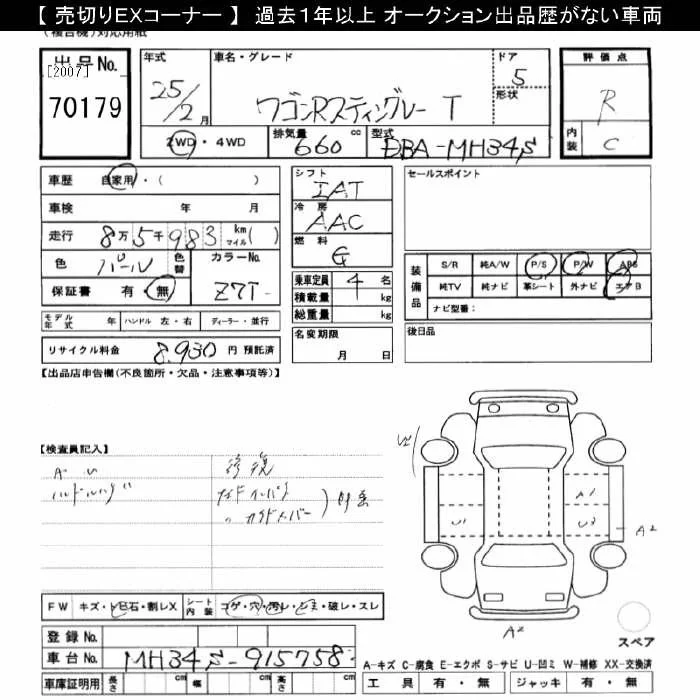 【 売切りEXコーナー 】 過去１年以上 オークション出品歴がない車両
出品No.
[2007]
70179
年式
25/2月
車名・グレード
ワゴンRスティングレー T
ドア
5
形状
評価点
R
内装
C
2WD・4WD
排気量
660 cc
型式
DBA-MH34S
車歴 自家用・( )
車検 年 月
走行 8万5千983 km マイル( )
色 パール 色替 カラーNo. Z7T
保証書 有・無
モデル年式 年 ハンドル 左・右 ディーラー・並行
リサイクル料金 8,930 円 預託済
シフト
IAT
冷房
AAC
燃料
G
乗車定員 4 名
積載量 kg
総重量 kg
名変期限
月 日
セールスポイント
装備品
S/R 純A/W P/S P/W ABS
純TV 純ナビ 革シート 外ナビ エアB
ナビ型番：
後日品
【出品店申告欄(不良箇所・欠品・注意事項等)】
【検査員記入】
A U
修復
A1
U1
U3
A2
A2
FW キズ・ヒビ石・割レX シート内装 コゲ・穴・汚レ・シミ・破レ・スレ
登録No.
車台No. MH34S-915758
車庫証明用 長さ cm 幅 cm 高さ cm
スペア
A-キズ C-腐食 E-エクボ S-サビ U-凹ミ W-補修 XX-交換済
工具 有・無 ジャッキ 有・無